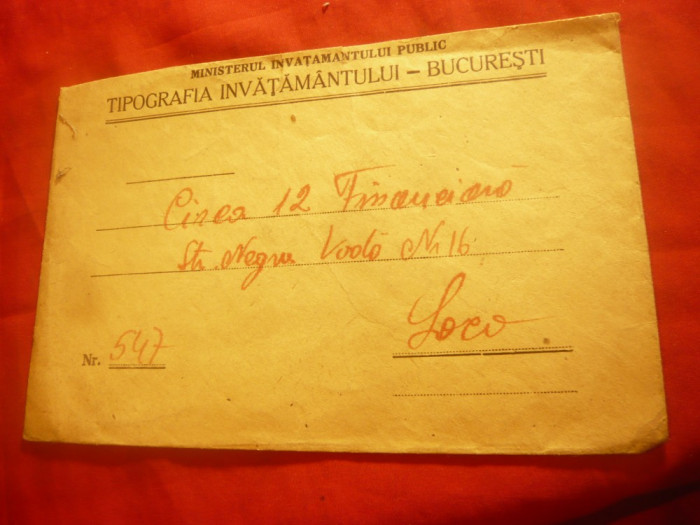 MINISTERUL INVATAMANTULUI PUBLIC
TIPOGRAFIA INVĂȚĂMÂNTULUI — BUCUREȘTI
Circa 12 Financiară
Str. Negru Vodă Nr 16
Loco
Nr. 547